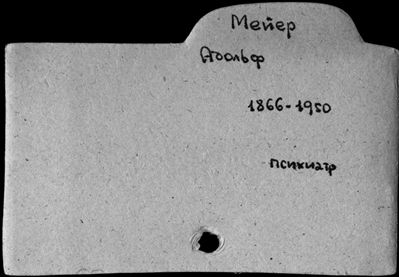 Мейер
Адольф
1866-1950
психиатр